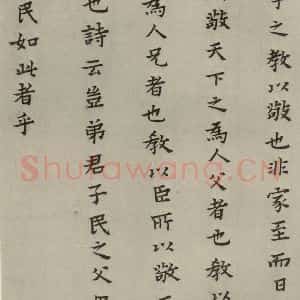 子之教以敬也非家至而日
敬天下之為人父者也教以
為人兄者也教以臣所以敬
也詩云豈弟君子民之父
民如此者乎
Shufawang.CN